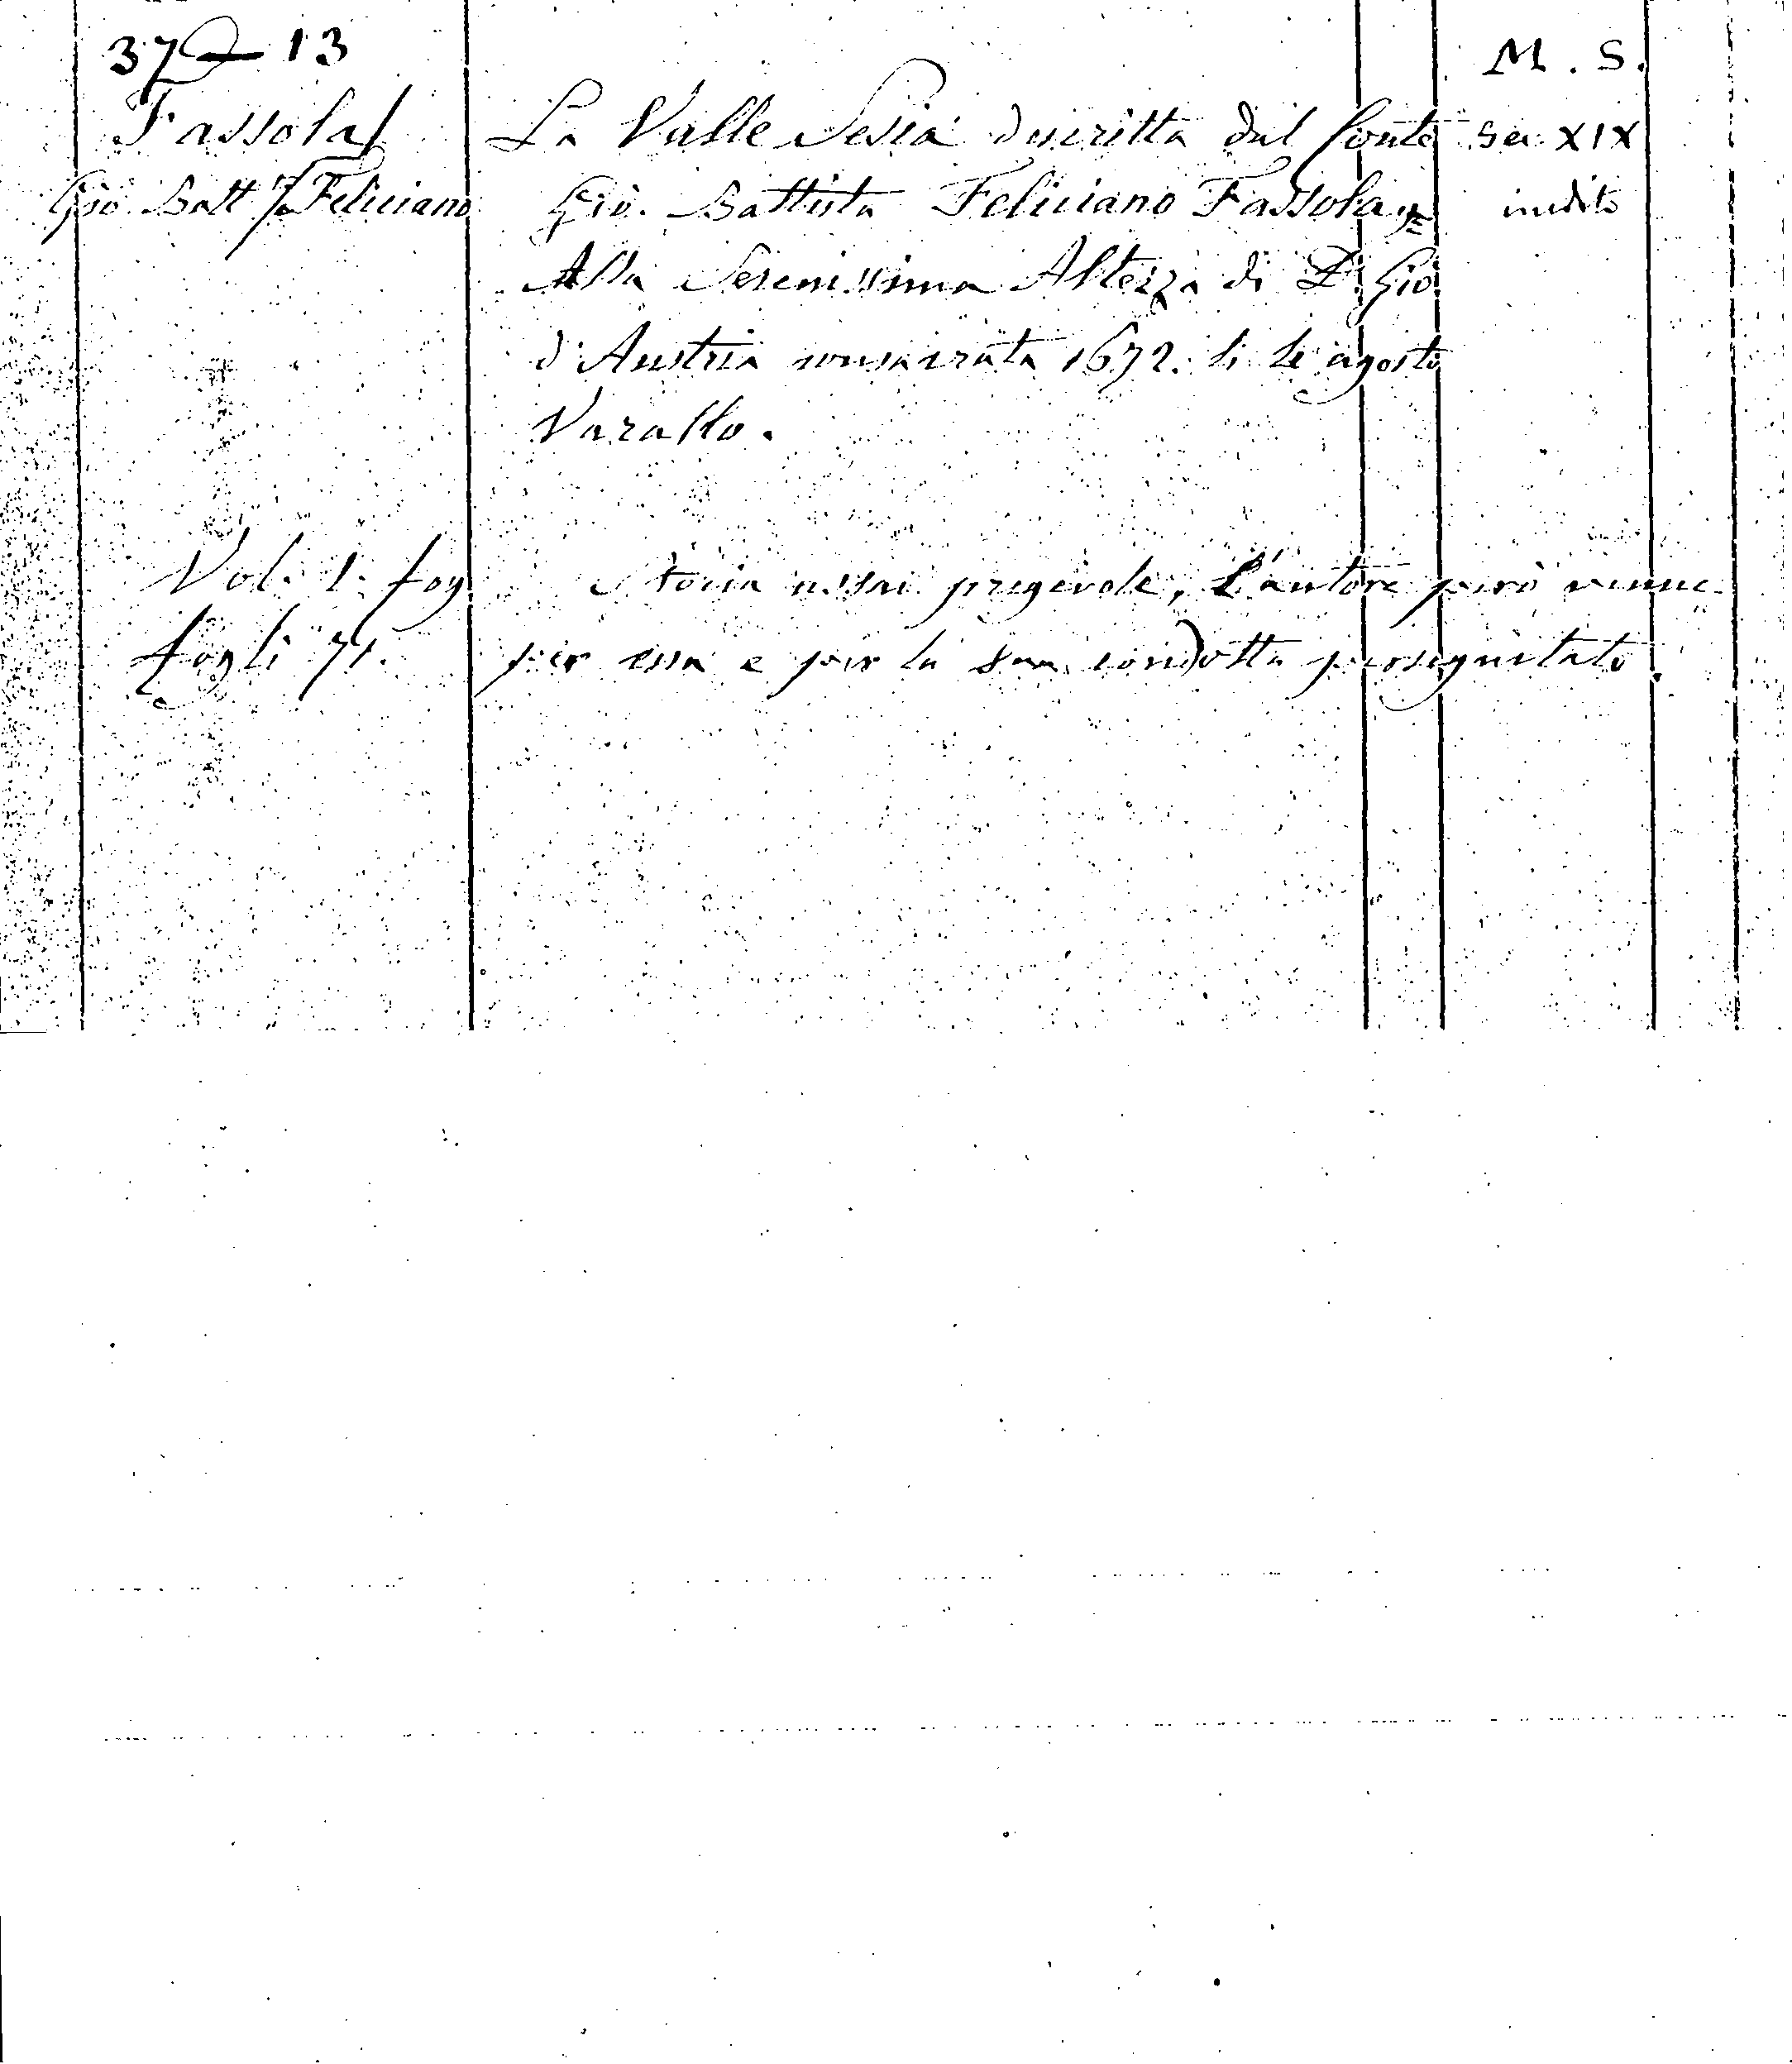 37 13
M. S.
Fassola
La Valle Sesia descritta dal Conte
Sec XIX
Gio Batt Feliciano
Gio. Battista Feliciano Fassola
inedito
Alla Serenissima Altezza di D. Gio
d'Austria consacrata 1672. li agosto
Varallo.
Vol. 1. fog
Storia assai pregevole, L'autore però venne
fogli 71.
per essa e per la sua condotta perseguitato.